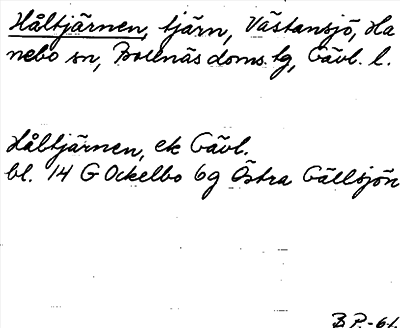 Håltjärnen, tjärn, Västansjö, Ha
nebo sn, Bollnäs doms. tg, Gävl. l.
Håltjärnen, ek Gävl.
bl. 14 G Ockelbo 6g Östra Gällsjön
B P.-61.